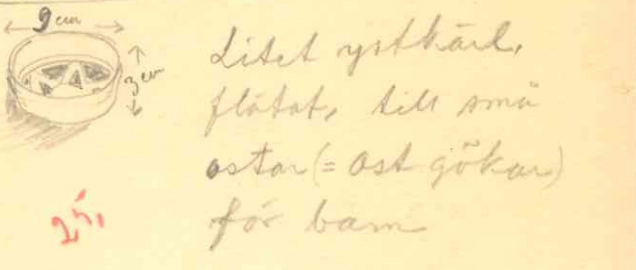 9 cm
3 cm
Litet ystkärl,
flätat, till små
ostar (= ost gökar)
för barn
25,